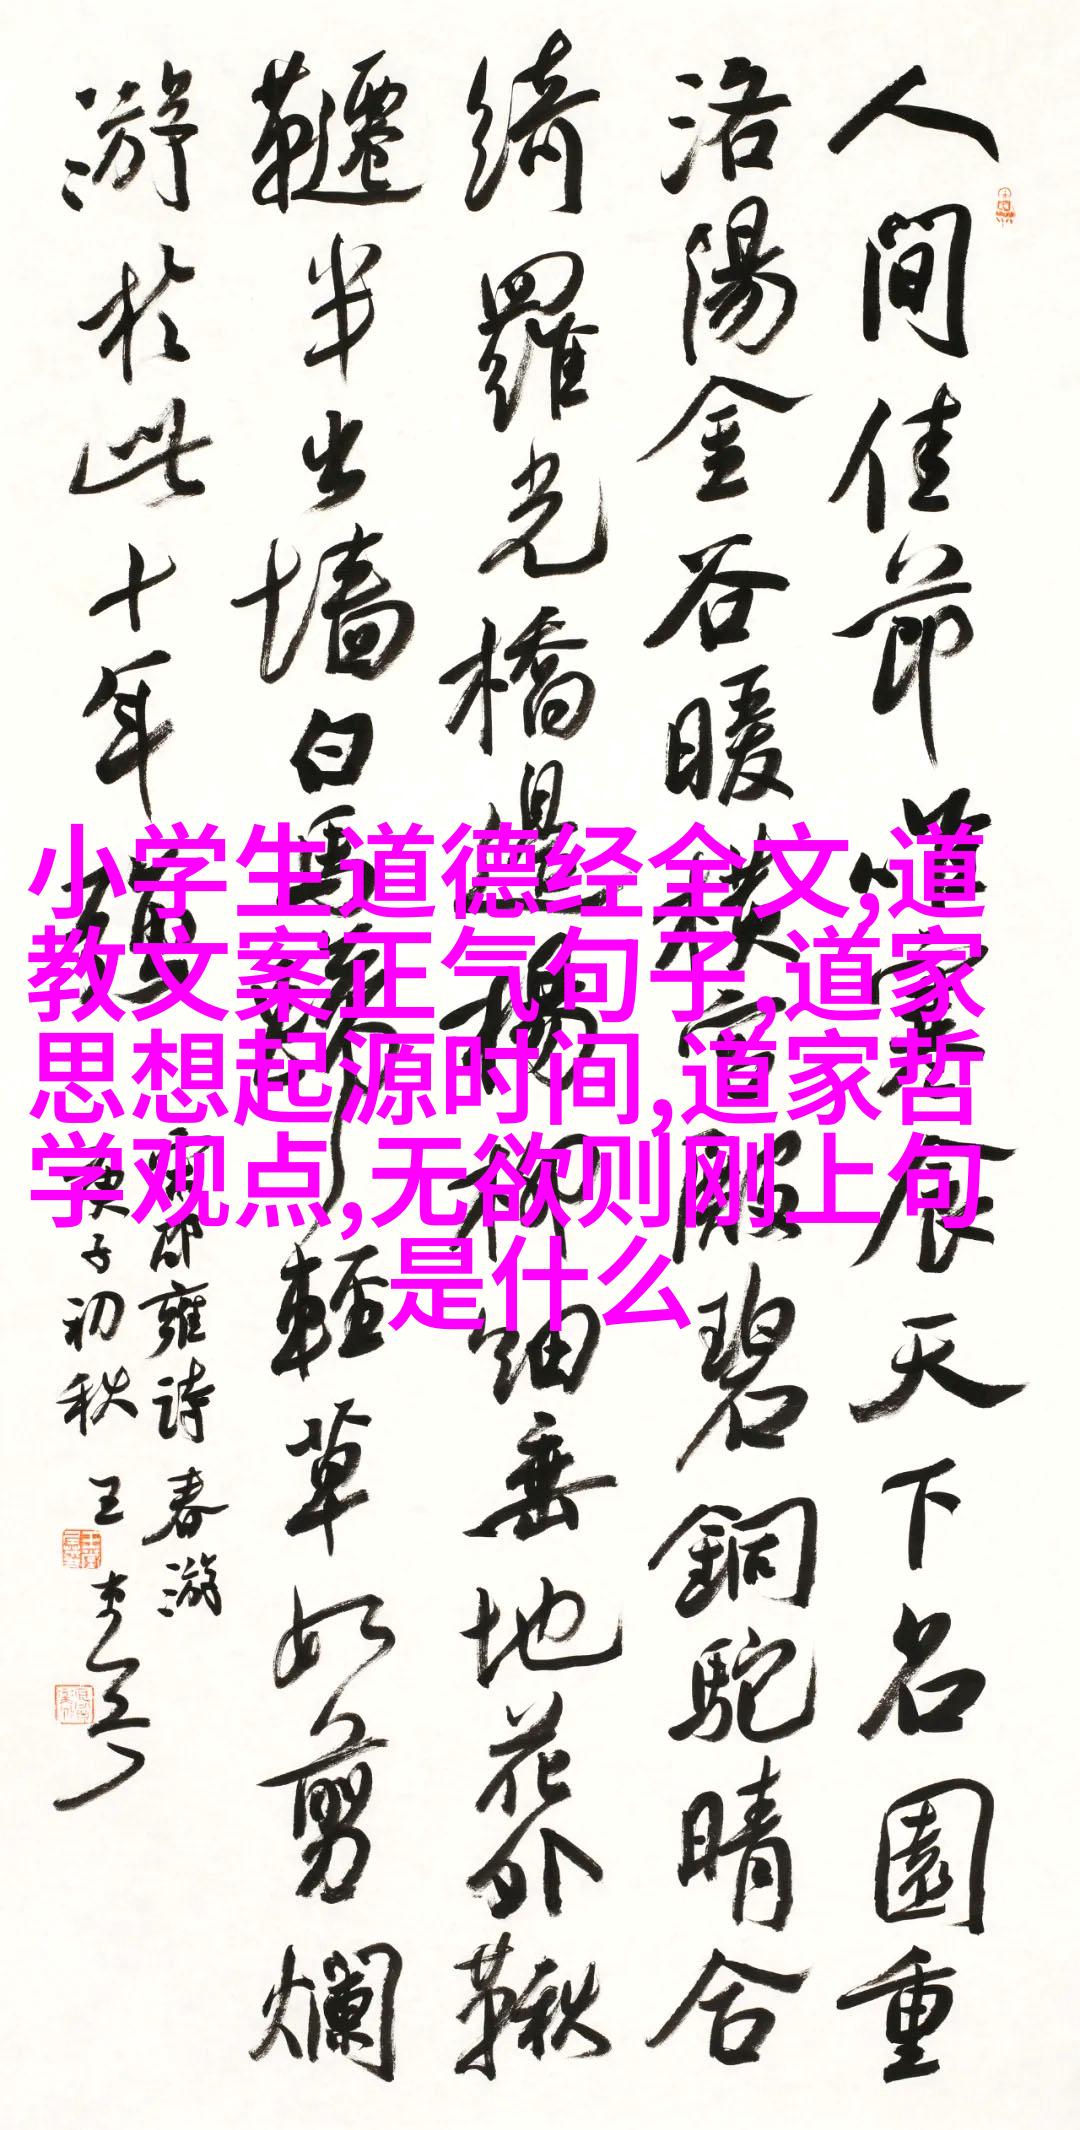 人間佳節唯寒食天下名園重
洛陽金谷暖橫宮殿碧銅駝晴合
綺羅光橋邊楊柳細垂地花外鞦
韆半出墻白馬蹄輕草如剪爛
游於此十年強
邵雍詩春游
庚子初秋王
小学生道德经全文,道
教文案正气句子,道家
思想起源时间,道家哲
学观点,无欲则刚上句
是什么